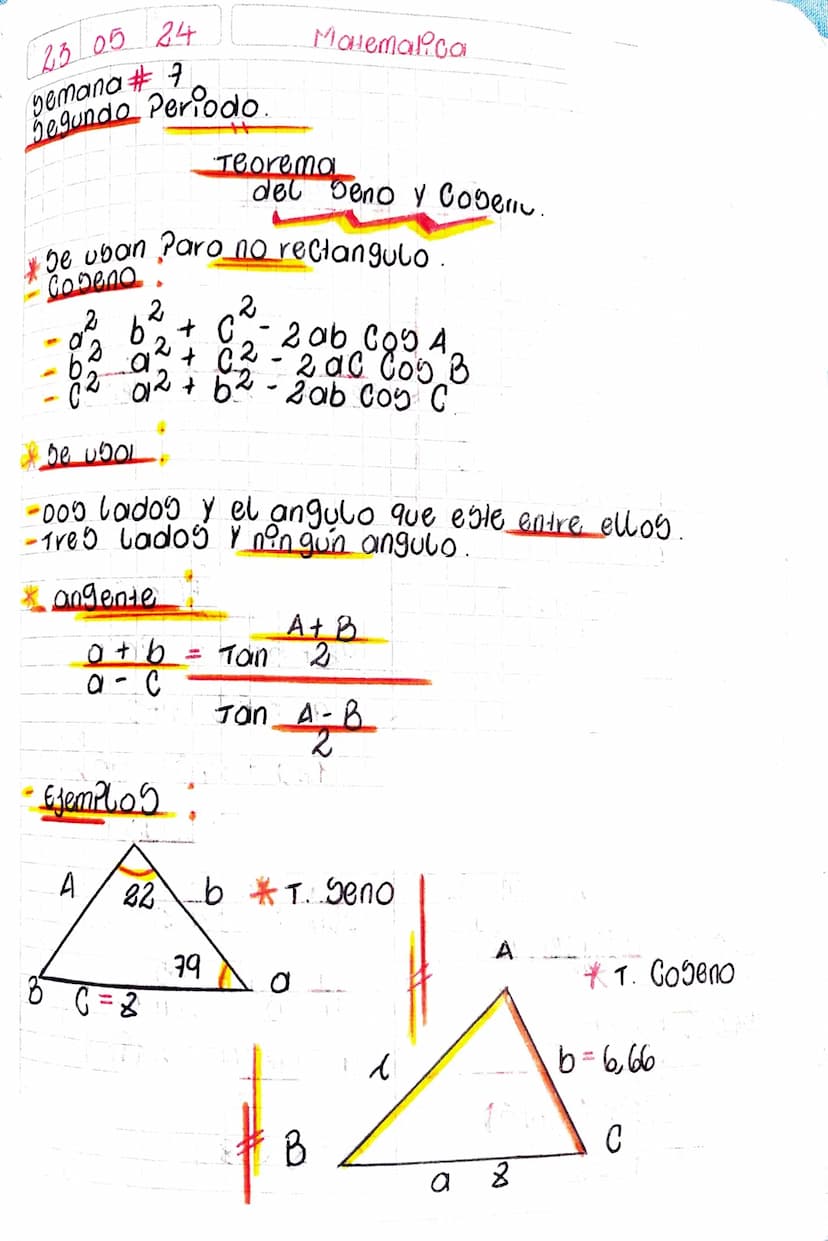 23 05 24
Matematica
Semana # 7
Segundo Periodo.
Teorema
del Seno y Coseno.
* Se usan Para no rectangulo.
- Coseno :
- a² b² + c² - 2ab Cos A
- b² a² + c² - 2ac Cos B
- c² a² + b² - 2ab Cos C
* Se usa :
- Dos lados y el angulo que este entre ellos.
- Tres lados y ningún angulo.
* angente :
a + b = Tan A + B
a - c 2
Tan A - B
2
- Ejemplos :
A 82 b * T. Seno
79 a
B C = 8
A * T. Coseno
b = 6,66
B C
a 8